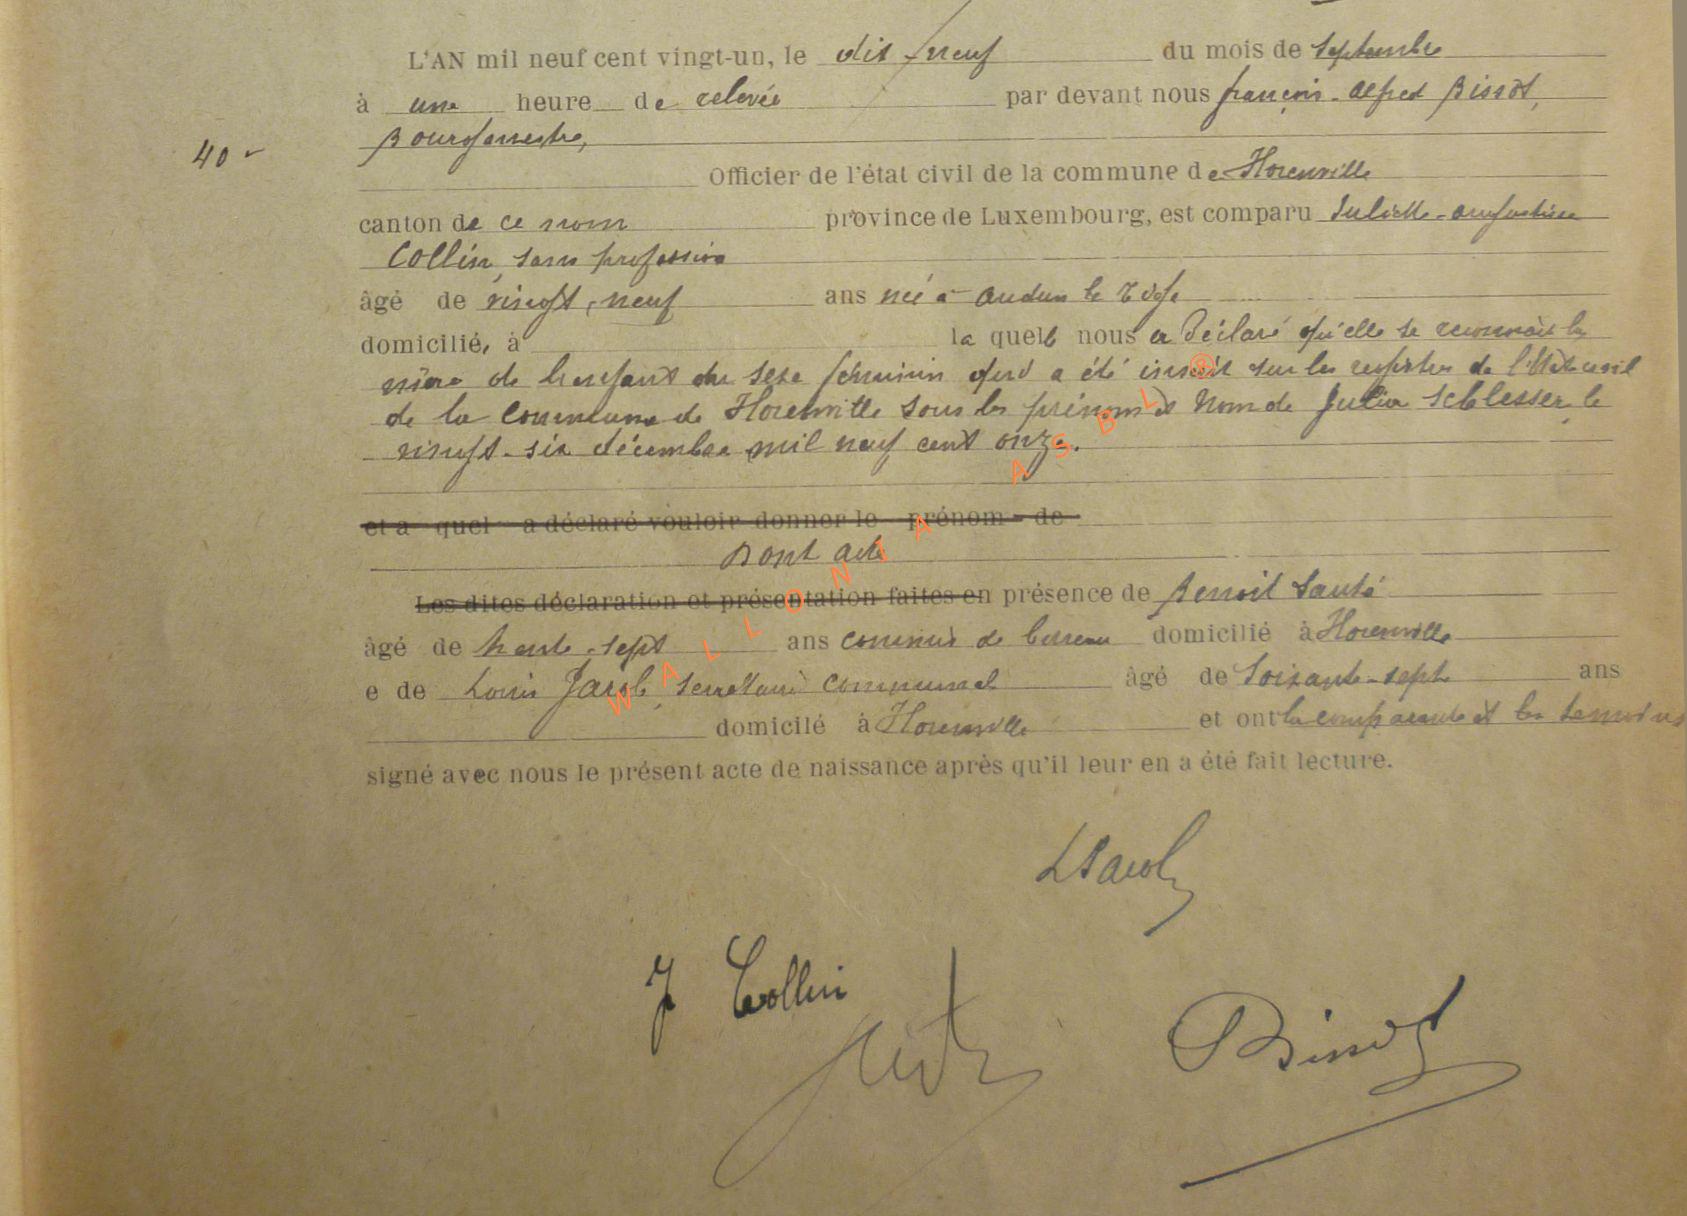 L'AN mil neuf cent vingt-un, le dix-neuf du mois de septembre
à une heure de relevée par devant nous françois-alfred Bissot,
Bourgmestre,
40
Officier de l'état civil de la commune de Florenville
canton de ce nom province de Luxembourg, est comparu Juliette-augustine
Collin, sans profession
âgé de vingt-neuf ans née à audun le Tige
domicilié, à la quelle nous a déclaré qu'elle se reconnait la
mère de l'enfant du sexe féminin qui a été inscrit sur les registres de l'Etat civil
de la commune de Florenville sous les prénom et nom de Julia Schlesser, le
vingt-six décembre mil neuf cent onze.
et a quel a déclaré vouloir donner le prénom de
Dont acte
Les dites déclaration et présentation faites en présence de Benoit
âgé de trente-sept ans commis de bureau domicilié à Florenville
e de Louis Jacob, secrétaire communal âgé de soixante-sept ans
domicilé à Florenville et ont la comparante et les témoins
signé avec nous le présent acte de naissance après qu'il leur en a été fait lecture.
LJacob
J Collin
Bissot
WALLONIA ASBL ®